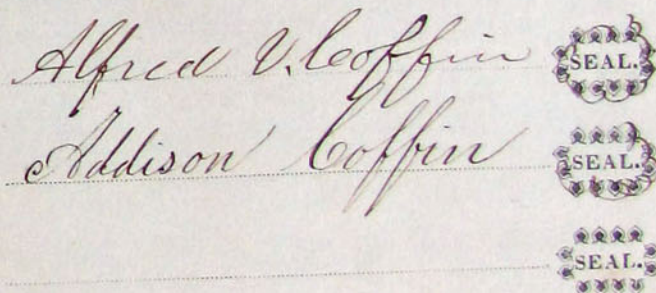 Alfred V. Coffin SEAL.
Addison Coffin SEAL.
SEAL.